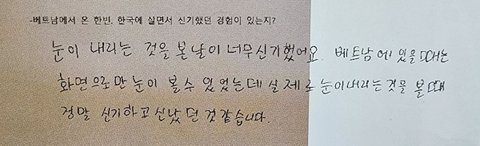 -베트남에서 온 한빈. 한국에 실면서 신기했던 경험이 있는지?
눈이 내리는 것을 본 날이 너무 신기했어요. 베트남에 있을 때는
화면으로만 눈이 볼 수 있었는데 실제로 눈이 내리는 것을 볼 때
정말 신기하고 신났던 것 같습니다.